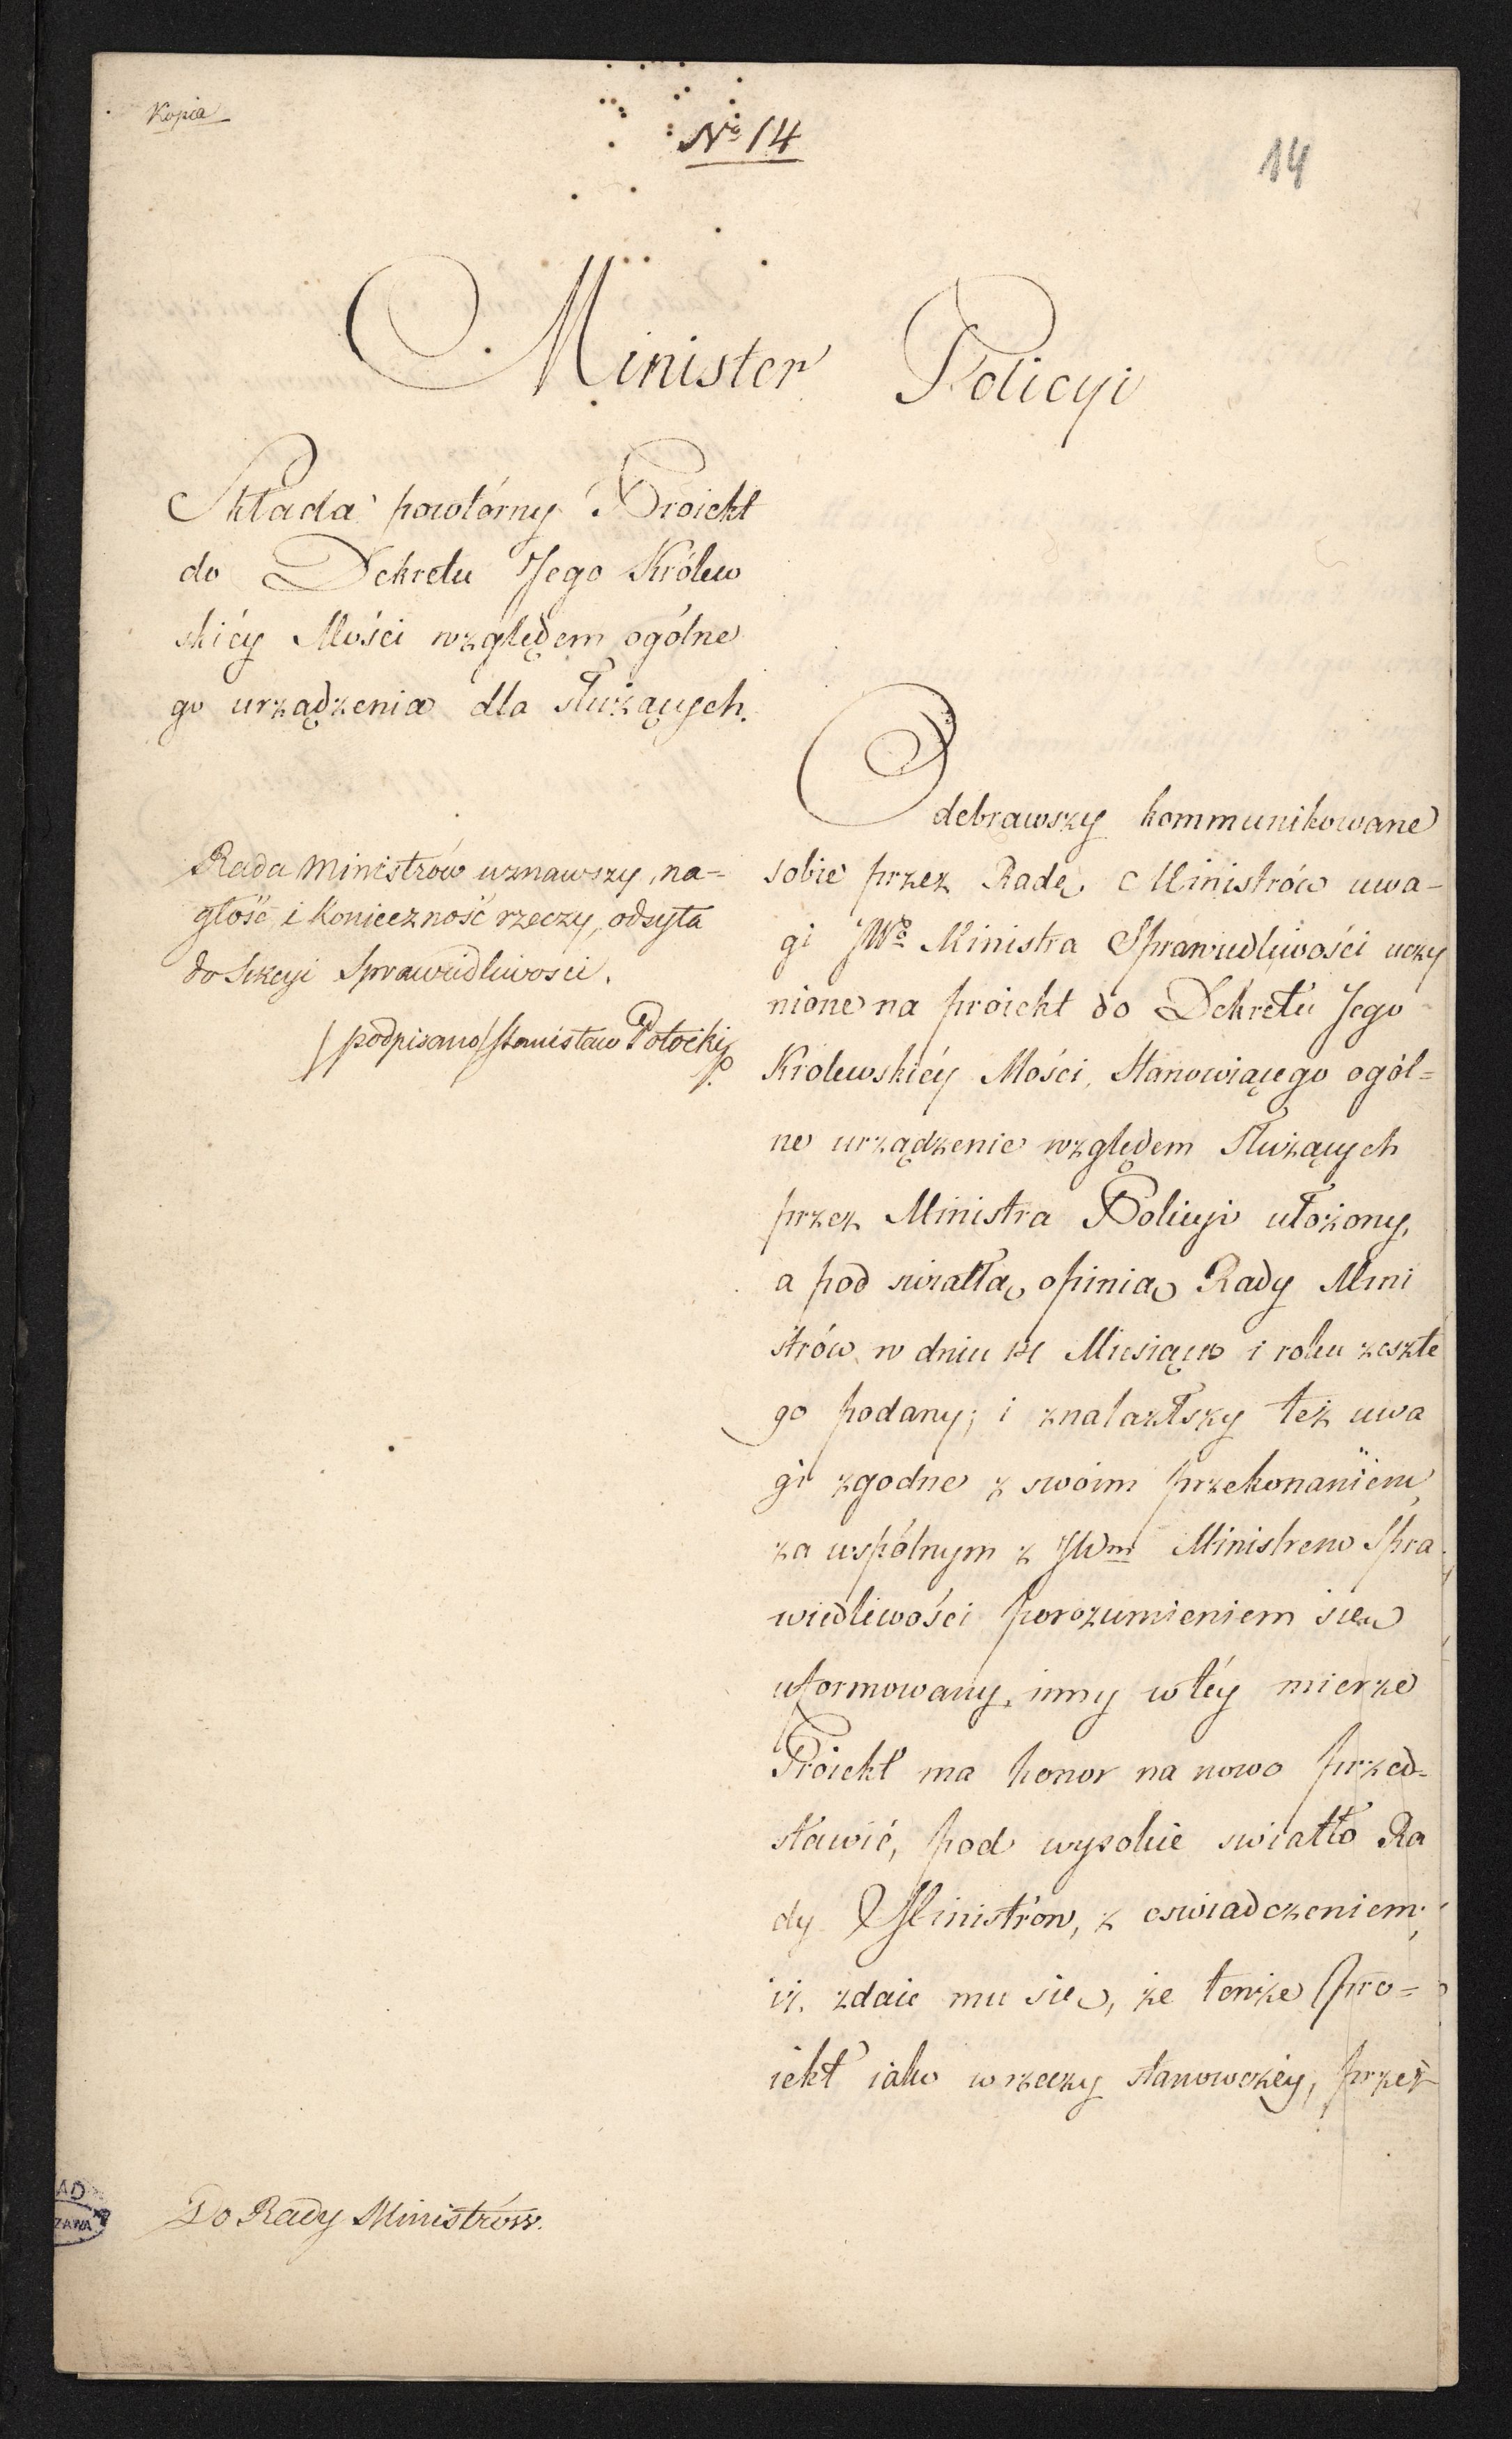 Kopia
No 14
14
Minister Policyi
Składa powtórny Proiekt
do Dekretu Jego Królew
skiéy Mości względem ogólne
go urządzenia dla służących.
Rada Ministrów uznawszy, na=
głość i konieczność rzeczy, odsyła
do Sekcyi Sprawiedliwości.
/podpisano/ Stanisław Potocki
P.
Odebrawszy kommunikowane
sobie przez Radę Ministrów uwa-
gi JWo Ministra Sprawiedliwości uczy
nione na proiekt do Dekretu Jego
Krolewskiéy Mości, Stanowiącego ogól=
ne urządzenie względem Służących
przez Ministra Policyi ułożony,
a pod swiatłą opinią Rady Mini
strów w dniu 14 Miesiąca i roku zeszłe
go podany; i znalazłszy też uwa
gi zgodne z swoim przekonaniem,
za wspólnym z JWm Ministrem Spra
wiedliwości porozumieniem się
uformowany, inny w téy mierze
Proiekt ma honor na nowo przed=
stawić, pod wysokie swiatło Ra
dy Ministrów, z oswiadczeniem,
iż zdaie mu się, że tenże pro=
iekt iako w rzeczy stanowczéy, przez
Do Rady Ministrów.
AD
ZAWA